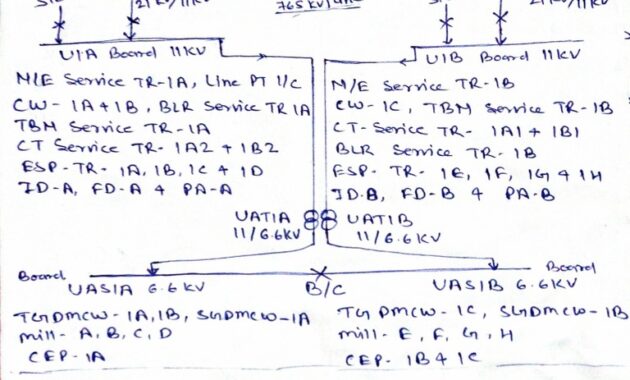 765 KV
U1A Board 11KV
U1B Board 11KV
M/E Service TR-1A, Line PT I/C
CW- 1A+1B, BLR Service TR 1A
TBM Service TR-1A
CT Service TR- 1A2 + 1B2
ESP-TR- 1A, 1B, 1C & 1D
ID-A, FD-A & PA-A
M/E Service TR-1B
CW-1C, TBM Service TR-1B
CT-Service TR- 1A1 + 1B1
BLR Service TR-1B
ESP- TR- 1E, 1F, 1G & 1H
ID-B, FD-B & PA-B
UAT1A
11/6.6KV
UAT1B
11/6.6KV
Board
UAS1A 6.6KV
B/C
UAS1B 6.6KV
Board
TGDMCW-1A,1B, SGDMCW-1A
mill- A, B, C, D
CEP-1A
TGDMCW-1C, SGDMCW-1B
mill- E, F, G, H
CEP- 1B & 1C